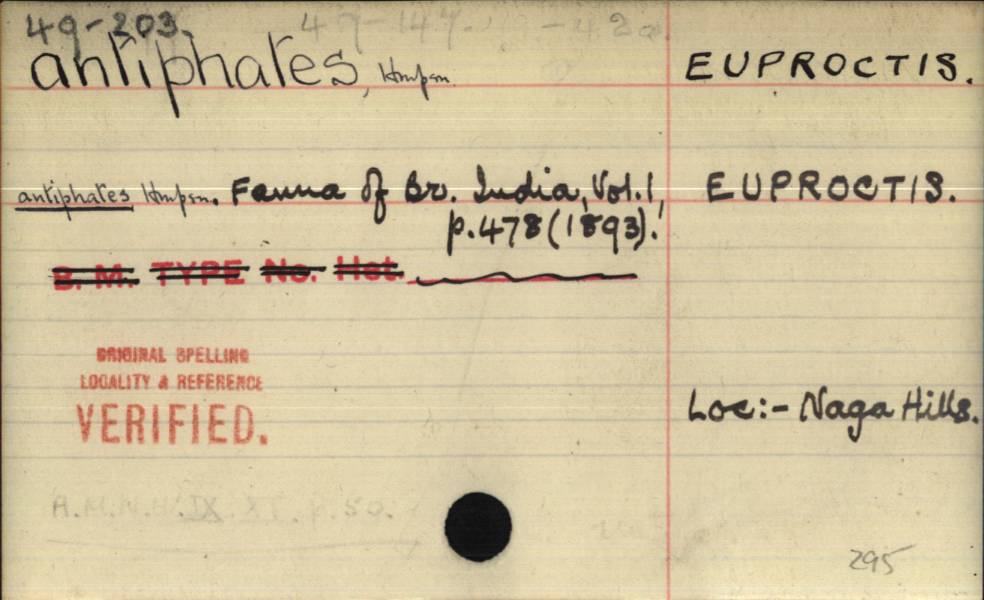 49-203.
antiphates, Hmpsn. EUPROCTIS.
antiphates Hmpsn. Fauna of Br. India, Vol. 1, EUPROCTIS.
p. 478 (1893).
B. M. TYPE No. Het.
ORIGINAL SPELLING
LOCALITY & REFERENCE
VERIFIED.
Loc:- Naga Hills.
A.M.N.H. IX. XI. p. 50.
295